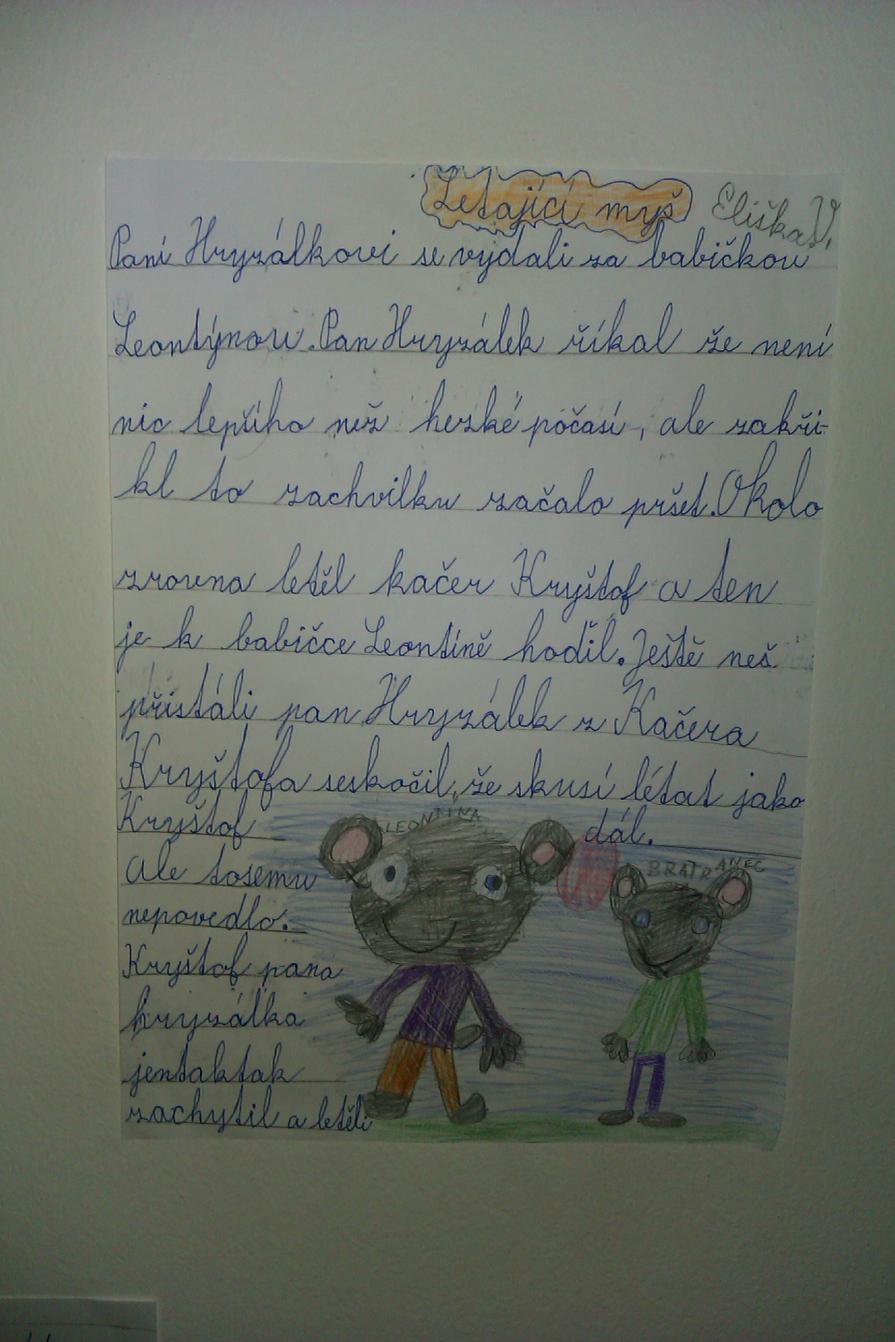 Letající myš
Eliška V.
Paní Hryzálkovi se vydali za babičkou
Leontýnou. Pan Hryzálek říkal že není
nic lepšího než hezké počasí, ale zakři-
kl to zachvilku začalo pršet. Okolo
zrovna letěl kačer Kryštof a ten
je k babičce Leontíně hodil. Ještě neš
přistáli pan Hryzálek z Kačera
Kryštofa seskočil, že skusí létat jako
Kryštof
dál.
LEONTÍNA
BRATRANEC
ale tosemu
nepovedlo.
Kryštof pana
hryzálka
jentaktak
zachytil a letěli